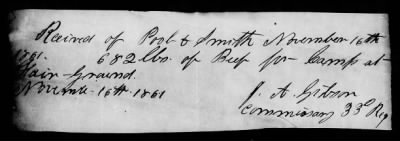 Received of Pool & Smith November 16th
1861. 682 lbs. of Beef for Camp at
Fair Ground.
November 16th 1861
J. A. Gibson
Commissary 33d Reg